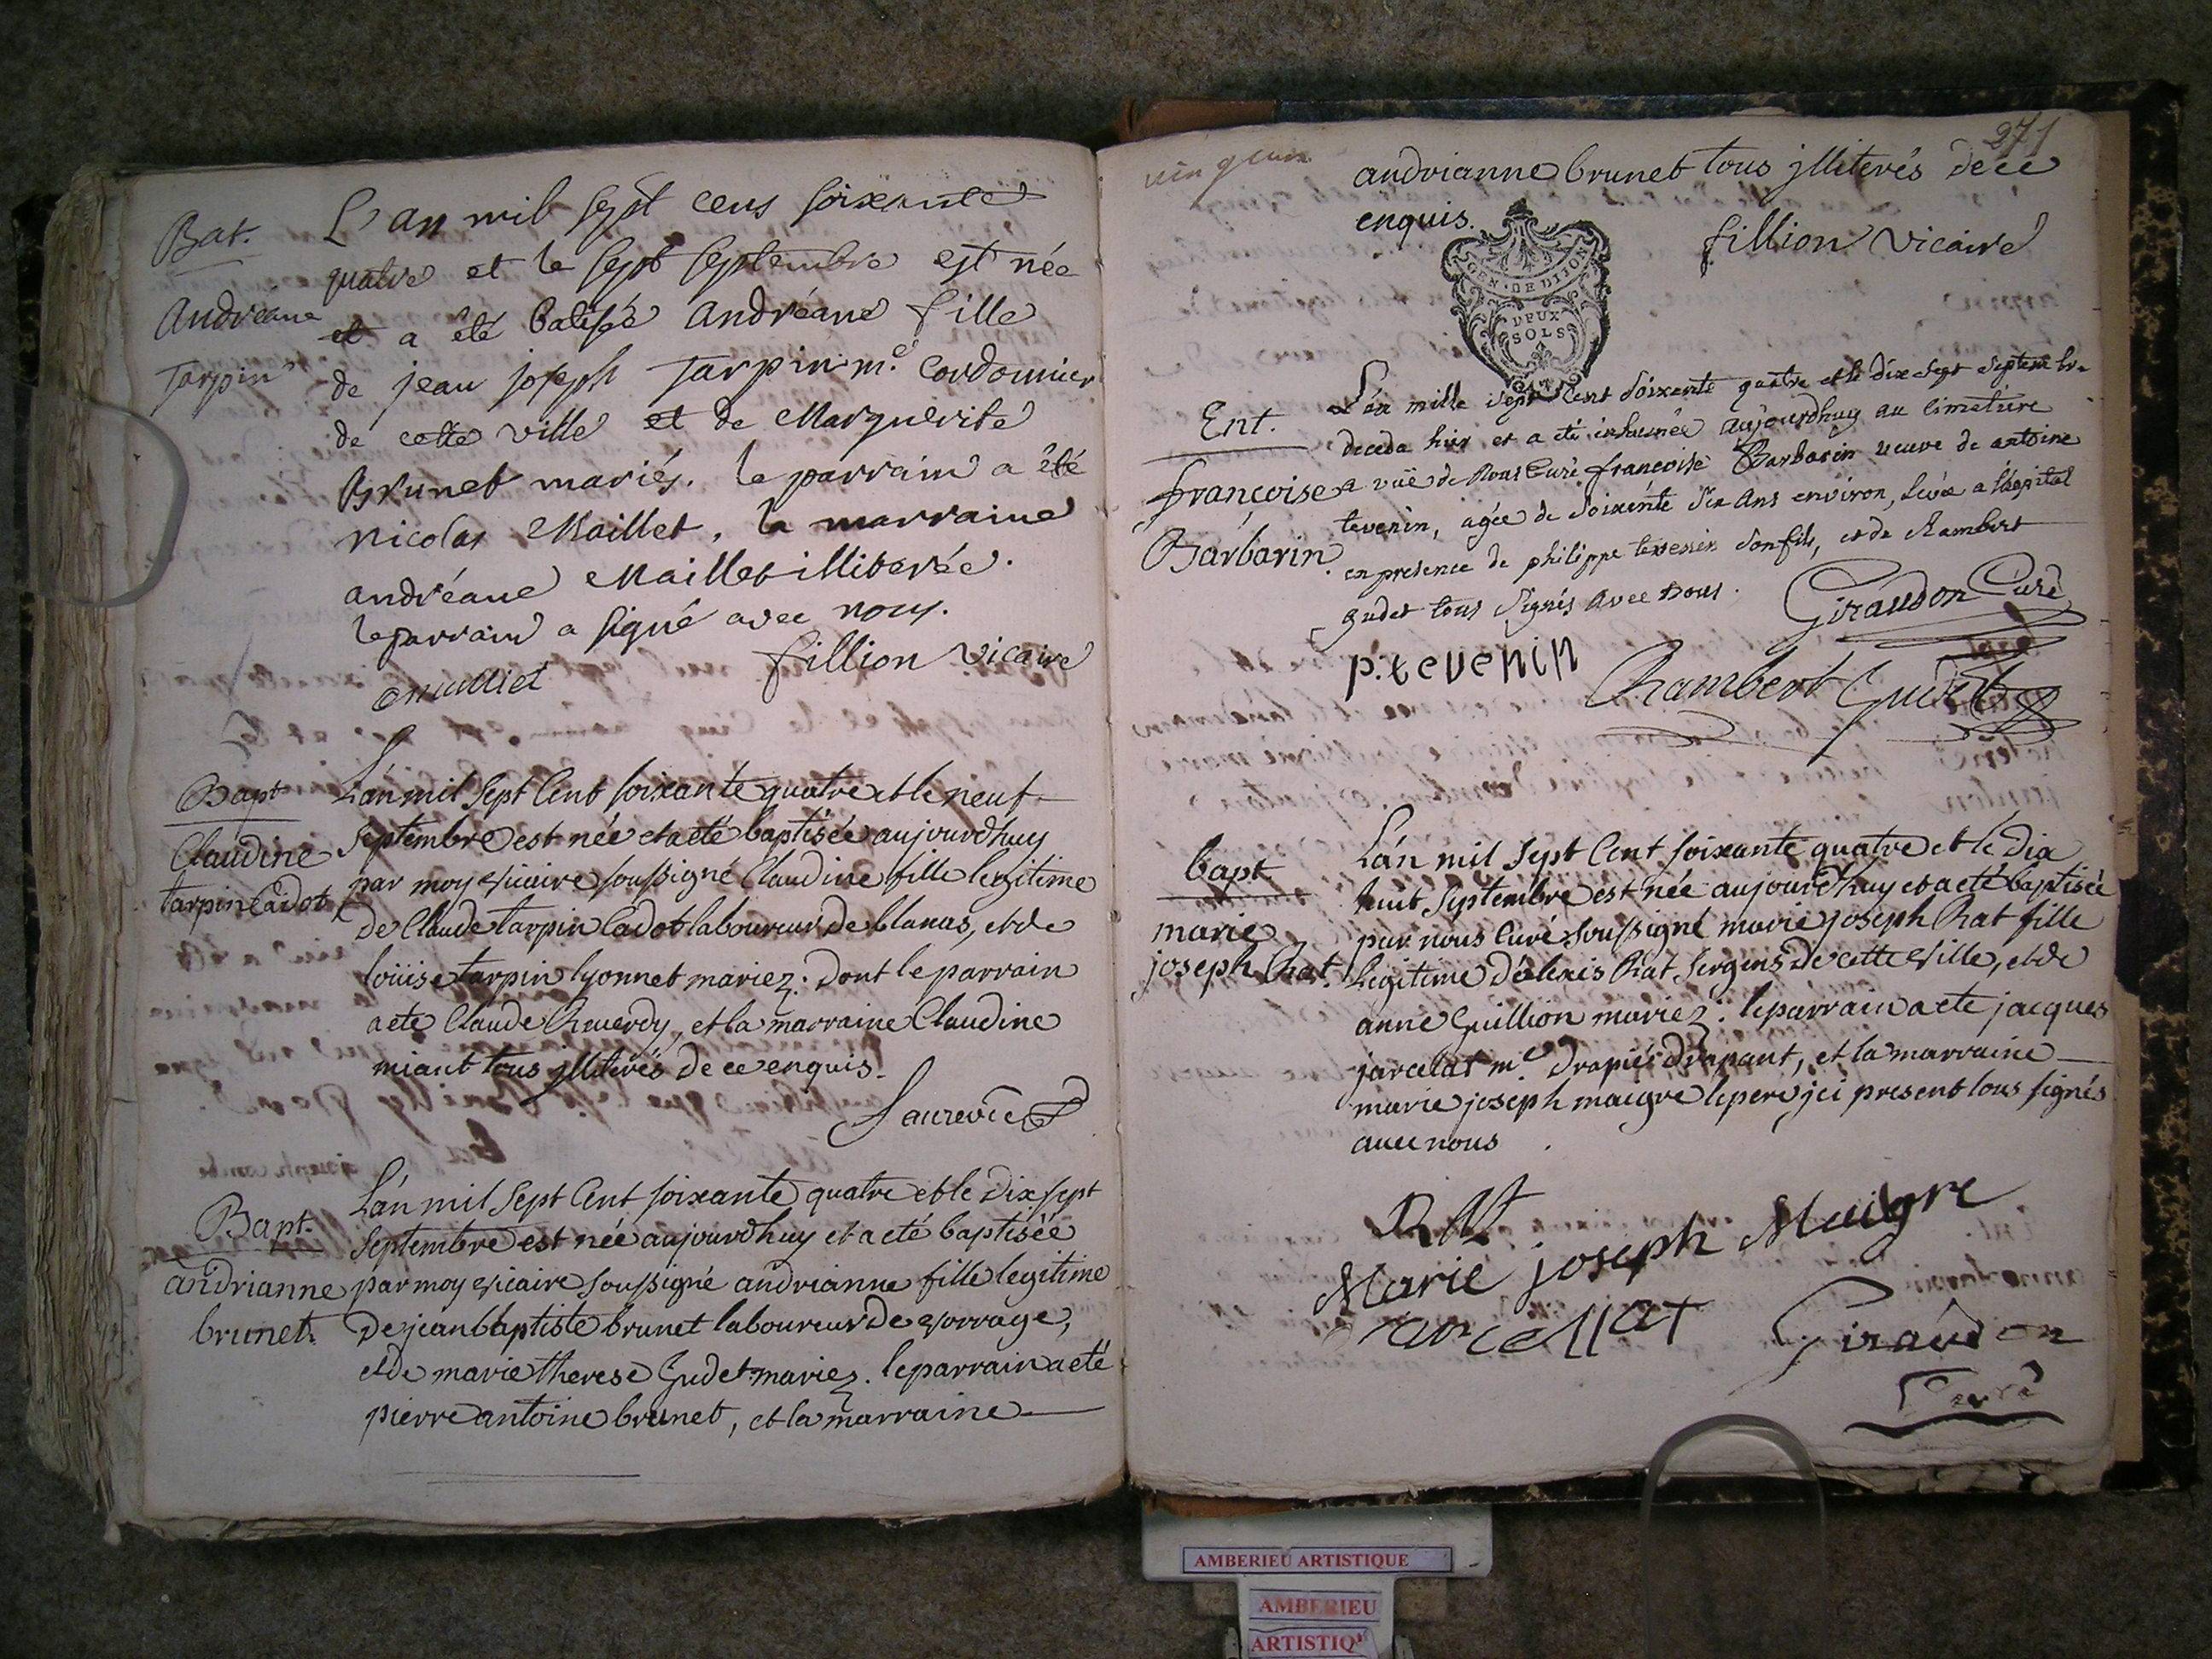 Bat.
Andreane
Tarpin
L'an mil sept cens soixante
quatre et le sept septembre est née
et a été batisée Andréane fille
de jean joseph Tarpin m.e Cordonnier
de cette ville et de Marguerite
Brunet mariés. le parrain a été
Nicolas Maillet, la marraine
andréane Maillet illiterée.
le parrain a signé avec nous.
fillion vicaire
Bapt
Claudine
tarpin Cadot
L'an mil sept Cent soixante quatre et le neuf
septembre est née et a eté baptisée aujourdhuy
par moy vicaire soussigné Claudine fille legitime
de Claude tarpin Cadot laboureur de blanas, et de
loüise tarpin lyonnet mariez. dont le parrain
a ete Claude et la marraine Claudine
miant tous jlliterés de ce enquis.
Bapt.
andrianne
brunet.
L'an mil sept Cent soixante quatre et le dix sept
septembre est née aujourdhuy et a eté baptisée
par moy vicaire soussigné andrianne fille legitime
de jean baptiste brunet laboureur de vorrage,
et de marie therese Gudet mariez. le parrain a eté
pierre antoine brunet, et la marraine
271
andrianne brunet tous jlliterés de ce
enquis.
fillion vicaire
GEN. DE DIJON
DEUX
SOLS
Ent.
françoise
Barbarin.
L'an mille sept cent soixante quatre et le dix sept septembre
deceda hier et a été inhumée aujourdhuy au cimetiere
a vuë de nous Curé françoise Barbarin veuve de antoine
tevenin, agée de soixente six ans environ, a l'hopital
en presence de philippe tevenin son fils, et de Rambert
gudet tous signés avec nous.
Giraudon Curé
p. tevenin
Rambert Gudet
bapt
marie
joseph Rat.
L'an mil sept Cent soixante quatre et le dix
huit septembre est née aujourd'huy et a eté baptisée
par nous Curé soussigné marie joseph Rat fille
legitime d'alexis Rat sergens de cette ville, et de
anne Guillion mariez. le parrain a ete jacques
jarcelat m.e drapier drapant, et la marraine
marie joseph maigre le pere jci present tous signés
avec nous
RAt
Marie joseph Maigre
jarcellat
Giraudon
Curé
AMBERIEU ARTISTIQUE
AMBERIEU
ARTISTIQ